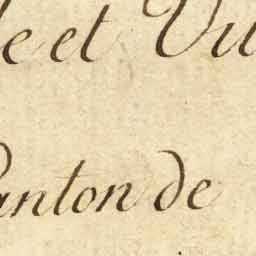 le et Vil
Canton de